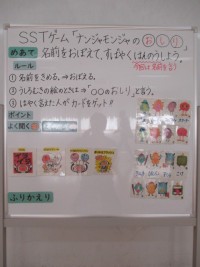 SSTゲーム「ナンジャモンジャのおしり」
めあて 名前をおぼえて、すばやくはんのうしよう。
ルール
① 名前をきめる。→おぼえる。
② うしろむきの絵のときは→「〇〇のおしり」と言う。
③ はやく言えた人がカードをゲット!
ポイント
よく聞く
ふりかえり